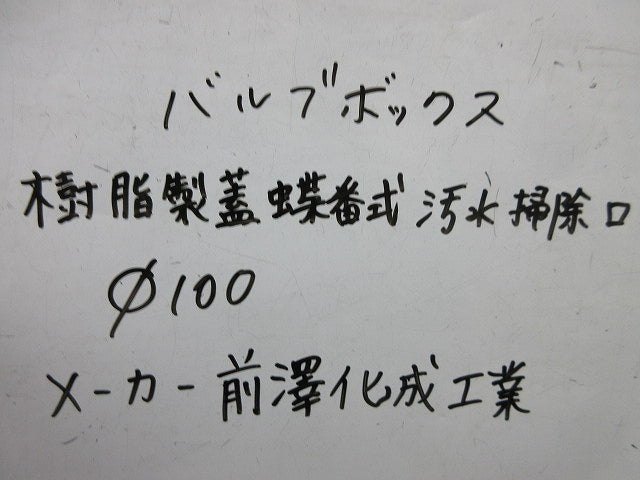 バルブボックス
樹脂製蓋蝶番式汚水掃除口
φ100
メーカー前澤化成工業